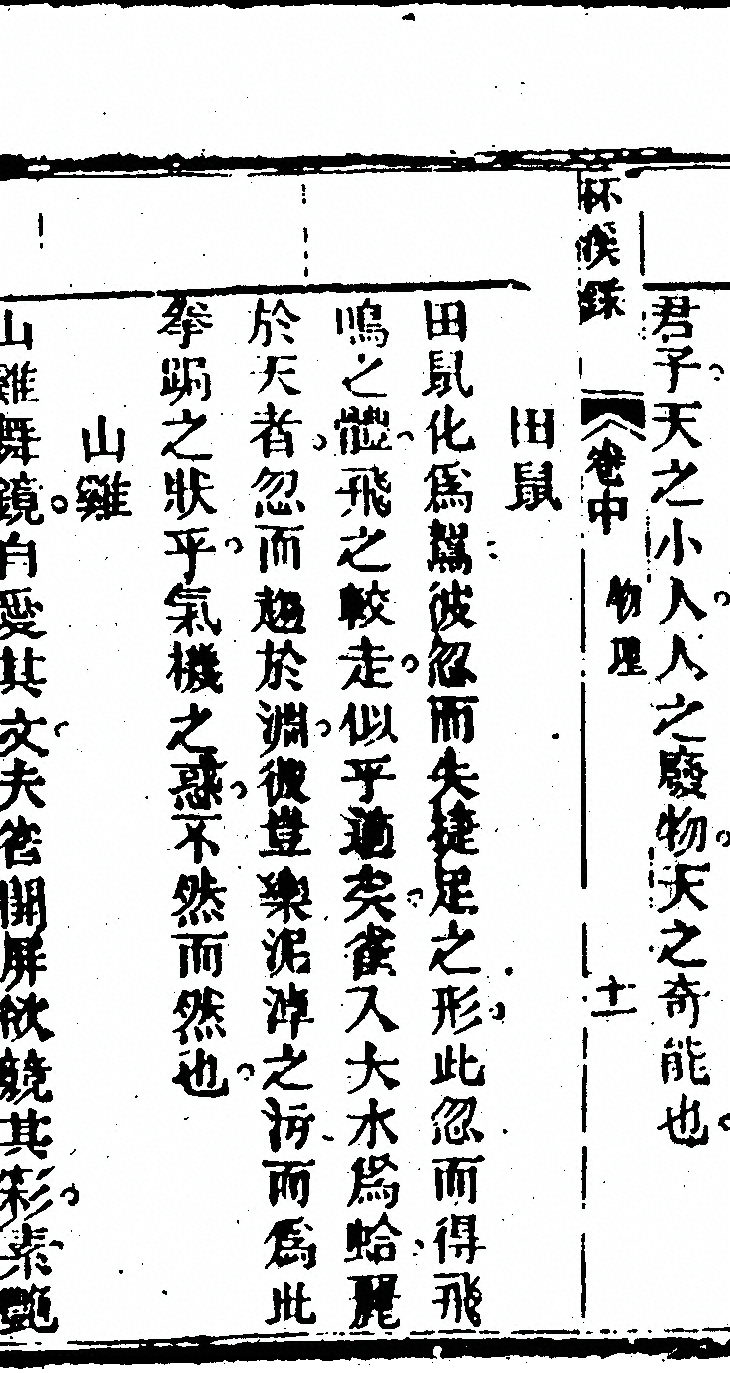 君子天之小人人之廢物天之奇能也
杯溪錄
卷中
物理
十一
田鼠
田鼠化爲鴽彼忽而失捷足之形此忽而得飛
鳴之體飛之較走似乎適矣雀入大水爲蛤麗
於天者忽而趨於淵彼豈樂泥淖之汚而爲此
拳跼之狀乎氣機之惑不然而然也
山雞
山雞舞鏡自愛其文夫容開屏欲競其彩素艷